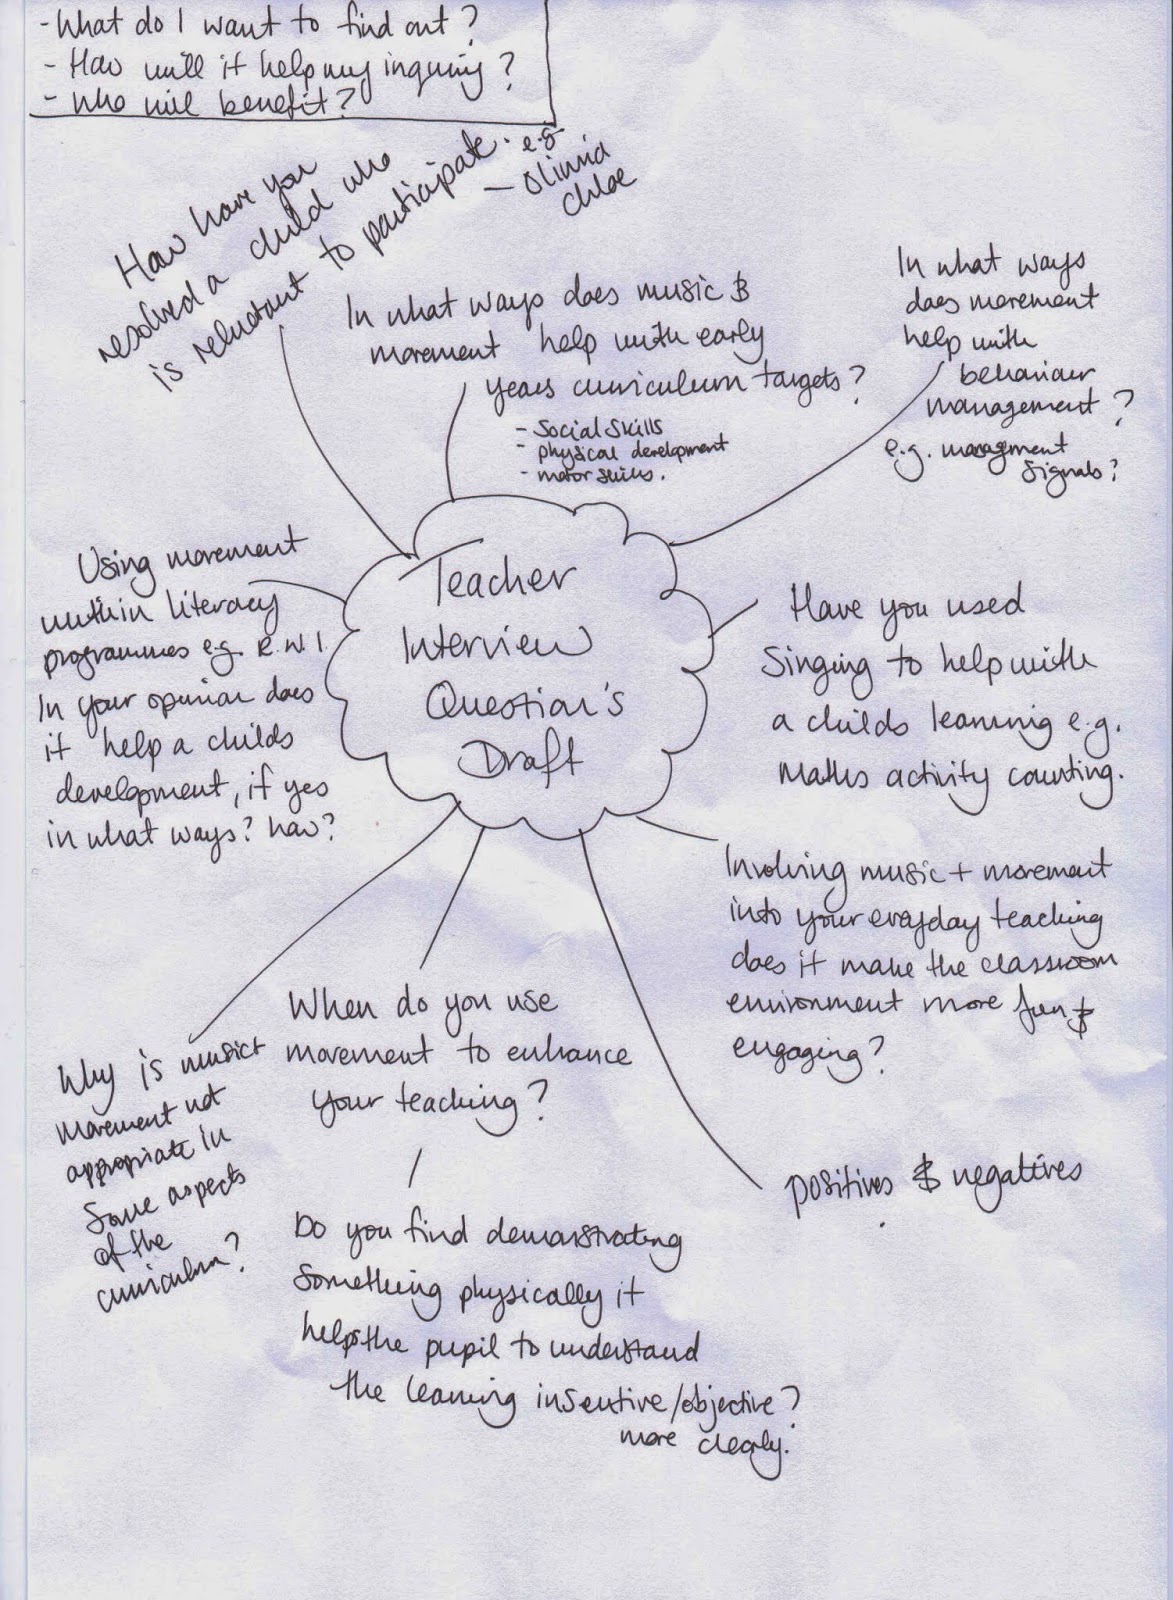 - What do I want to find out?
- How will it help my inquiry?
- Who will benefit?
How have you
resolved a child who
is reluctant to participate. e.g
- Olivia
Chloe
In what ways does music &
movement help with early
years curriculum targets?
- Social skills
- physical development
- motor skills.
In what ways
does movement
help with
behaviour
management?
e.g. management
signals?
Teacher
Interview
Question's
Draft
Using movement
within literacy
programmes e.g. R.W.I.
In your opinion does
it help a childs
development, if yes
in what ways? how?
Have you used
singing to help with
a childs learning e.g.
Maths activity counting.
Involving music + movement
into your everyday teaching
does it make the classroom
environment more fun &
engaging?
positives & negatives
When do you use
movement to enhance
your teaching?
Do you find demonstrating
something physically it
helps the pupil to understand
the learning insentive/objective?
more clearly.
Why is music +
movement not
appropriate in
some aspects
of the
curriculum?